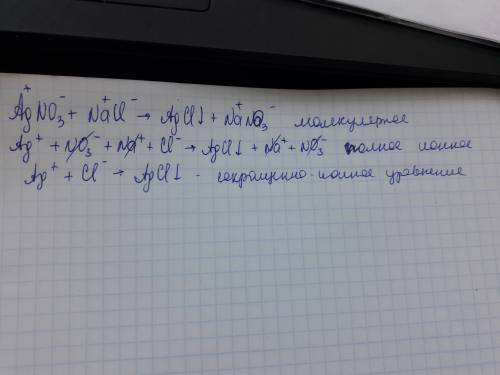 Ag⁺NO₃⁻ + Na⁺Cl⁻ → AgCl↓ + Na⁺NO₃⁻ молекулярное
Ag⁺ + NO₃⁻ + Na⁺ + Cl⁻ → AgCl↓ + Na⁺ + NO₃⁻ полное ионное
Ag⁺ + Cl⁻ → AgCl↓ - сокращенно-ионное уравнение